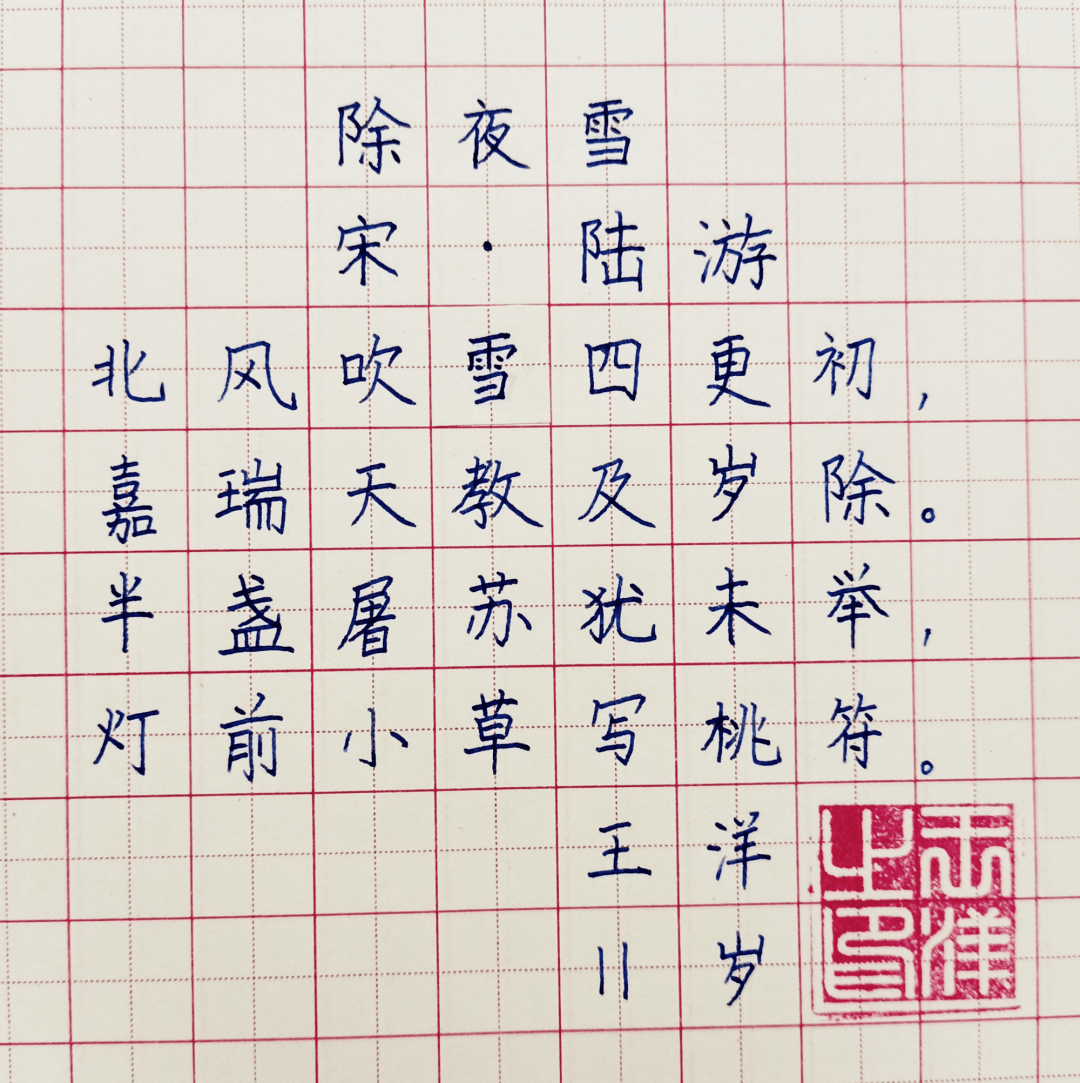 除夜雪
宋·陆游
北风吹雪四更初，
嘉瑞天教及岁除。
半盏屠苏犹未举，
灯前小草写桃符。
王洋
11岁
王洋之印